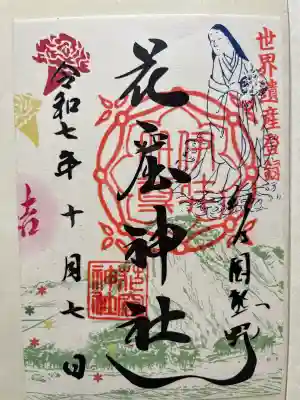 世界遺産登録
紀乃国熊野
花窟神社
花窟神社
令和七年十月七日
吉